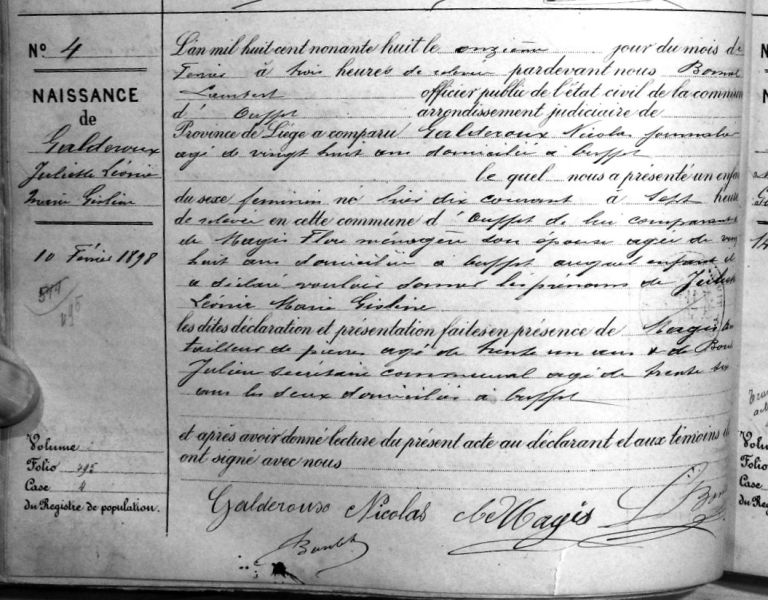 N° 4
NAISSANCE
de
Galderoux
Juliette Léonie
Marie Gisline
10 Février 1898
595
Volume
Folio 295
Case 4
du Registre de population.
L'an mil huit cent nonante huit le onzième jour du mois de
Février à trois heures de relevée pardevant nous
Lambert officier public de l'état civil de la commune
d' Ouffet arrondissement judiciaire de
Province de Liége a comparu Galderoux Nicolas journalier
agé de vingt huit ans domicilié à Ouffet
le quel nous a présenté un enfant
du sexe feminin né hier dix courant à sept heures
de relevée en cette commune d' Ouffet de lui comparant
de Magis Flore ménagère son épouse agée de vingt
huit ans domiciliée à Ouffet auquel enfant il
a déclaré vouloir donner les prénoms de Juliette
Léonie Marie Gisline
les dites déclaration et présentation faites en présence de Magis
tailleur de pierres agé de trente un ans & de
Julien secrétaire communal agé de trente six
ans les deux domiciliés à Ouffet
et après avoir donné lecture du présent acte au déclarant et aux témoins ils
ont signé avec nous
Galderoux Nicolas Magis
Volu
Folio
Case
du Reg